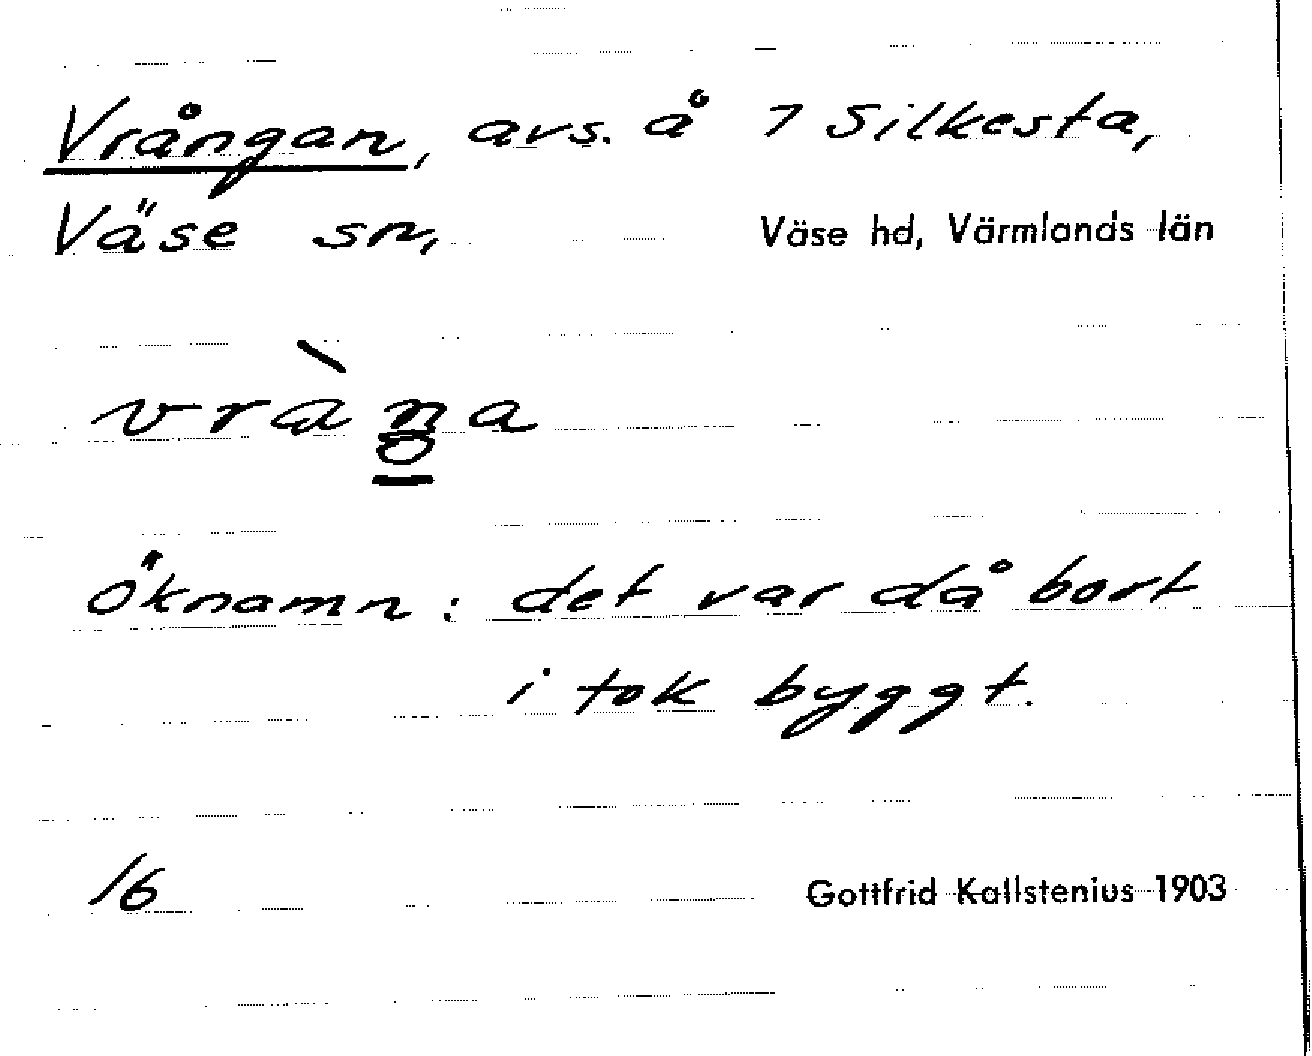 Vrångan, avs. å 7 Silkesta,
Väse sn, Väse hd, Värmlands län
vràn̥a
öknamn: det var då bort
i tok byggt.
16 Gottfrid Kallstenius 1903